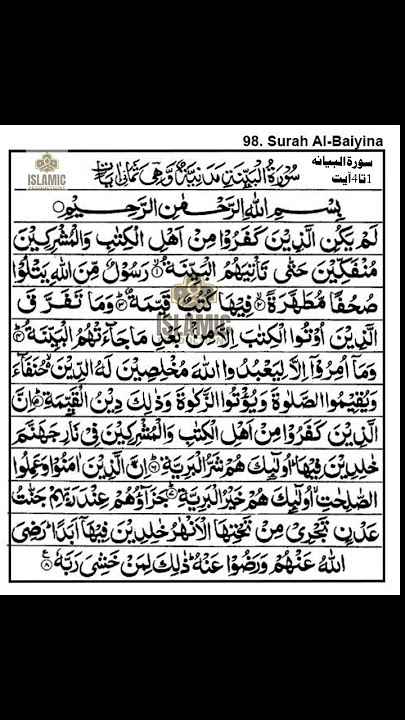 98. Surah Al-Baiyina
سورة البیانه
1تا4آیت
ISLAMIC
سُوْرَةُ الْبَيِّنَةِ مَدَنِيَّةٌ وَّهِىَ ثَمَانِىْ اٰيَاتٍ
بِسْمِ اللّٰهِ الرَّحْمٰنِ الرَّحِيْمِ
لَمْ يَكُنِ الَّذِيْنَ كَفَرُوْا مِنْ اَهْلِ الْكِتٰبِ وَالْمُشْرِكِيْنَ
مُنْفَكِّيْنَ حَتّٰى تَاْتِيَهُمُ الْبَيِّنَةُ ۙ‏﴿۱﴾ رَسُوْلٌ مِّنَ اللّٰهِ يَتْلُوْا
صُحُفًا مُّطَهَّرَةً ۙ‏﴿۲﴾ فِيْهَا كُتُبٌ قَيِّمَةٌ ؕ‏﴿۳﴾ وَمَا تَفَرَّقَ
الَّذِيْنَ اُوْتُوا الْكِتٰبَ اِلَّا مِنْۢ بَعْدِ مَا جَآءَتْهُمُ الْبَيِّنَةُ ؕ‏﴿۴﴾
وَمَاۤ اُمِرُوْۤا اِلَّا لِيَعْبُدُوا اللّٰهَ مُخْلِصِيْنَ لَهُ الدِّيْنَ ۙ حُنَفَآءَ
وَيُقِيْمُوا الصَّلٰوةَ وَيُؤْتُوا الزَّكٰوةَ وَذٰلِكَ دِيْنُ الْقَيِّمَةِ ؕ‏﴿۵﴾ اِنَّ
الَّذِيْنَ كَفَرُوْا مِنْ اَهْلِ الْكِتٰبِ وَالْمُشْرِكِيْنَ فِىْ نَارِ جَهَنَّمَ
خٰلِدِيْنَ فِيْهَا ؕ اُولٰٓئِكَ هُمْ شَرُّ الْبَرِيَّةِ ؕ‏﴿۶﴾ اِنَّ الَّذِيْنَ اٰمَنُوْا وَعَمِلُوا
الصّٰلِحٰتِ ۙ اُولٰٓئِكَ هُمْ خَيْرُ الْبَرِيَّةِ ؕ‏﴿۷﴾ جَزَآؤُهُمْ عِنْدَ رَبِّهِمْ جَنّٰتُ
عَدْنٍ تَجْرِىْ مِنْ تَحْتِهَا الْاَنْهٰرُ خٰلِدِيْنَ فِيْهَاۤ اَبَدًا ؕ رَضِىَ
اللّٰهُ عَنْهُمْ وَرَضُوْا عَنْهُ ؕ ذٰلِكَ لِمَنْ خَشِىَ رَبَّهٗ‏﴿۸﴾